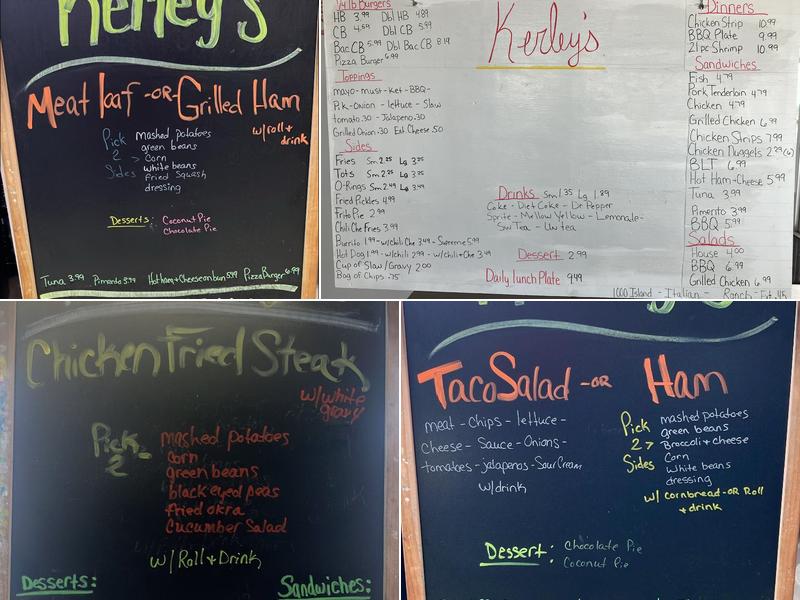 Kerley's
Meatloaf -OR- Grilled Ham
w/roll +
drink
Pick
2 >
Sides
mashed potatoes
green beans
Corn
white beans
Fried Squash
dressing
Desserts: Coconut Pie
Chocolate Pie
Tuna 3.99 Pimento 3.99 Hot ham+Cheese on bun 5.99 Pizza Burger 6.99
1/4 lb Burgers
HB 3.99 Dbl HB 4.89
CB 4.59 Dbl CB 5.99
Bac CB 5.99 Dbl Bac CB 8.19
Pizza Burger 6.99
Toppings
mayo - must - Ket - BBQ -
Pik - Onion - lettuce - Slaw
tomato .30 - Jalapeno .30
Grilled Onion .30 Ext. Cheese .50
Sides
Fries Sm 2.25 Lg 3.25
Tots Sm 2.25 Lg 3.25
O-Rings Sm 2.49 Lg 3.49
Fried Pickles 4.99
Frito Pie 2.99
Chili Che Fries 3.99
Burrito 1.99 - w/chili Che 3.49 - Supreme 5.99
Hot Dog 1.99 - w/chili 2.99 - w/chili + Che 3.49
Cup of Slaw/Gravy 2.00
Bag of Chips .75
Kerley's
Drinks Sm 1.35 Lg 1.89
Coke - Diet Coke - Dr. Pepper
Sprite - Mellow Yellow - Lemonade -
Sw Tea - Un tea
Dessert 2.99
Daily lunch Plate 9.49
Dinners
Chicken Strip 10.99
BBQ Plate 9.99
21 pc Shrimp 10.99
Sandwiches
Fish 4.79
Pork Tenderloin 4.79
Chicken 4.79
Grilled Chicken 6.99
Chicken Strips 7.99
Chicken Nuggets 2.99 (6)
BLT 6.99
Hot Ham-Cheese 5.99
Tuna 3.99
Pimento 3.99
BBQ 5.99
Salads
House 4.00
BBQ 6.99
Grilled Chicken 6.99
1000 Island - Italian - Ranch - Ext .45
Chicken Fried Steak
w/white
gravy
Pick
2
mashed potatoes
corn
green beans
black eyed peas
fried okra
Cucumber Salad
w/ Roll + Drink
Desserts:
Sandwiches:
Taco Salad -OR Ham
meat - Chips - lettuce -
Cheese - Sauce - Onions -
tomatoes - jalapenos - Sour Cream
w/drink
Pick
2 >
Sides
mashed potatoes
green beans
Broccoli + cheese
Corn
White beans
dressing
w/ Cornbread -OR Roll
+ drink
Dessert: Chocolate Pie
Coconut Pie